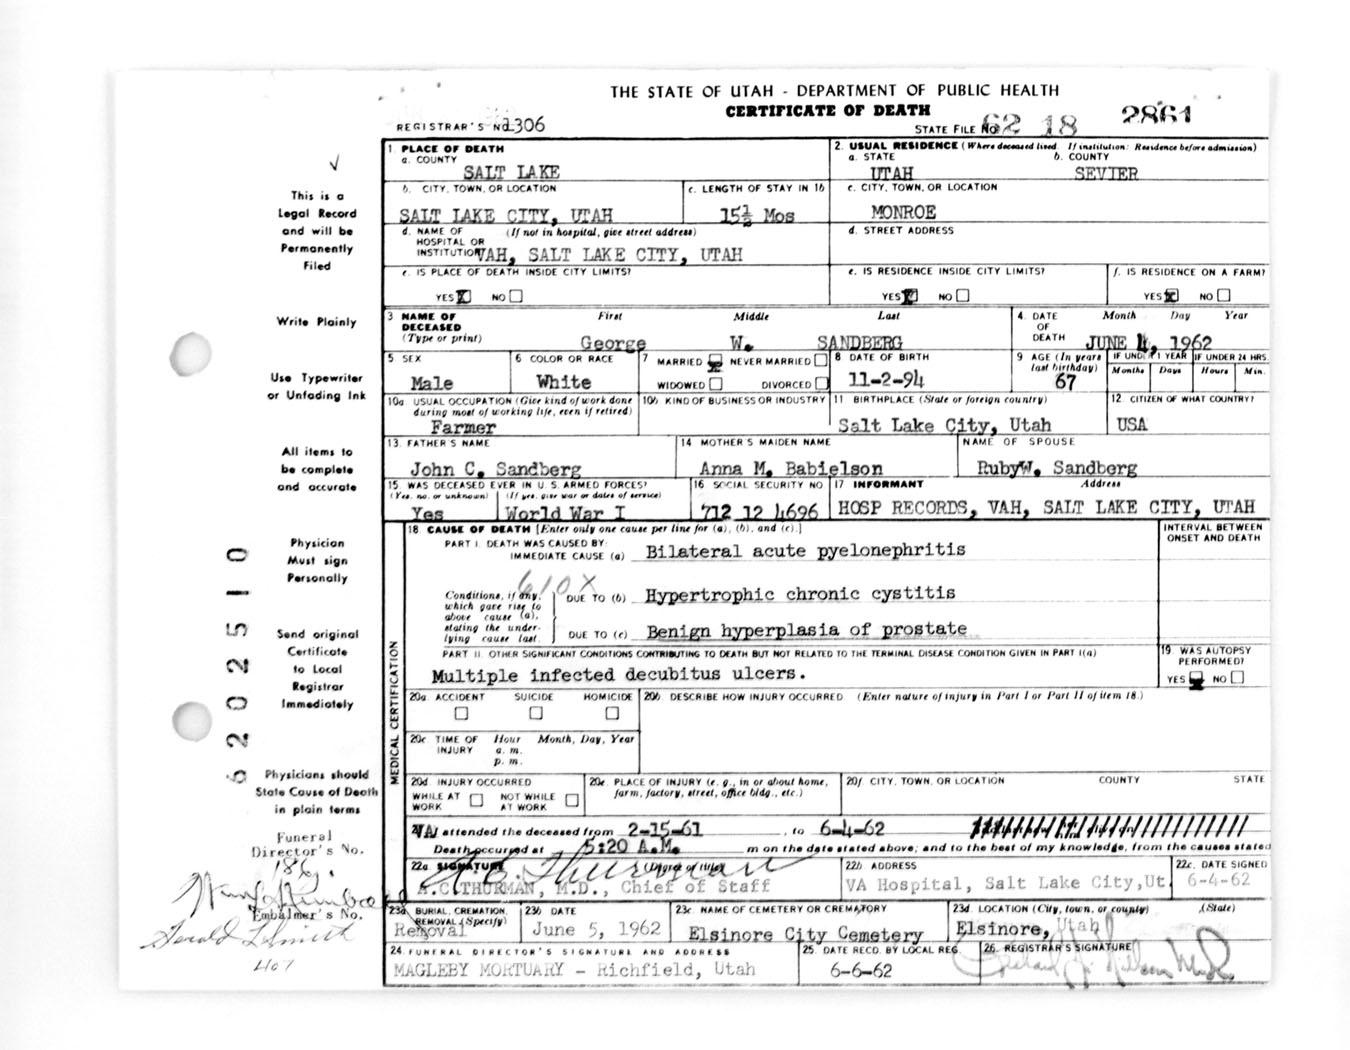 THE STATE OF UTAH - DEPARTMENT OF PUBLIC HEALTH
CERTIFICATE OF DEATH
REGISTRAR'S NO. 1306
STATE FILE NO. 62 18 2861
This is a
Legal Record
and will be
Permanently
Filed
Write Plainly
Use Typewriter
or Unfading Ink
All items to
be complete
and accurate
Physician
Must sign
Personally
Send original
Certificate
to Local
Registrar
Immediately
Physicians should
State Cause of Death
in plain terms
Funeral
Director's No.
186
Embalmer's No.
Gerald L Smith
407
6202510
1. PLACE OF DEATH
a. COUNTY
SALT LAKE
2. USUAL RESIDENCE (Where deceased lived. If institution: Residence before admission)
a. STATE b. COUNTY
UTAH SEVIER
b. CITY, TOWN, OR LOCATION
SALT LAKE CITY, UTAH
c. LENGTH OF STAY IN 1b
15½ Mos
c. CITY, TOWN, OR LOCATION
MONROE
d. NAME OF (If not in hospital, give street address)
HOSPITAL OR
INSTITUTION VAH, SALT LAKE CITY, UTAH
d. STREET ADDRESS
e. IS PLACE OF DEATH INSIDE CITY LIMITS?
YES X NO
e. IS RESIDENCE INSIDE CITY LIMITS?
YES X NO
f. IS RESIDENCE ON A FARM?
YES X NO
3 NAME OF DECEASED (Type or print) First Middle Last
George W. SANDBERG
4. DATE OF DEATH Month Day Year
JUNE 4, 1962
5 SEX
Male
6 COLOR OR RACE
White
7 MARRIED NEVER MARRIED
WIDOWED DIVORCED
8 DATE OF BIRTH
11-2-94
9 AGE (In years last birthday)
67
IF UNDER 1 YEAR IF UNDER 24 HRS.
Months Days Hours Min.
10a. USUAL OCCUPATION (Give kind of work done
during most of working life, even if retired)
Farmer
10b KIND OF BUSINESS OR INDUSTRY
11 BIRTHPLACE (State or foreign country)
Salt Lake City, Utah
12 CITIZEN OF WHAT COUNTRY?
USA
13. FATHER'S NAME
John C. Sandberg
14 MOTHER'S MAIDEN NAME
Anna M. Babielson
NAME OF SPOUSE
RubyW. Sandberg
15. WAS DECEASED EVER IN U.S. ARMED FORCES?
(Yes, no, or unknown) (If yes, give war or dates of service)
Yes World War I
16 SOCIAL SECURITY NO
712 12 4696
17 INFORMANT Address
HOSP RECORDS, VAH, SALT LAKE CITY, UTAH
MEDICAL CERTIFICATION
18 CAUSE OF DEATH [Enter only one cause per line for (a), (b), and (c).]
INTERVAL BETWEEN
ONSET AND DEATH
PART I. DEATH WAS CAUSED BY:
IMMEDIATE CAUSE (a) Bilateral acute pyelonephritis
610X
Conditions, if any,
which gave rise to
above cause (a),
stating the under-
lying cause last.
DUE TO (b) Hypertrophic chronic cystitis
DUE TO (c) Benign hyperplasia of prostate
PART II. OTHER SIGNIFICANT CONDITIONS CONTRIBUTING TO DEATH BUT NOT RELATED TO THE TERMINAL DISEASE CONDITION GIVEN IN PART I(a)
Multiple infected decubitus ulcers.
19. WAS AUTOPSY
PERFORMED?
YES NO
20a. ACCIDENT SUICIDE HOMICIDE
20b. DESCRIBE HOW INJURY OCCURRED (Enter nature of injury in Part I or Part II of item 18.)
20c TIME OF INJURY Hour Month, Day, Year
a. m.
p. m.
20d. INJURY OCCURRED
WHILE AT WORK NOT WHILE AT WORK
20e. PLACE OF INJURY (e. g., in or about home,
farm, factory, street, office bldg., etc.)
20f. CITY, TOWN, OR LOCATION COUNTY STATE
VA attended the deceased from 2-15-61, to 6-4-62
Death occurred at 5:20 A.M. m on the date stated above; and to the best of my knowledge, from the causes stated
22a. SIGNATURE (Degree or title)
A.C. Thurman
A.C. THURMAN, M.D., Chief of Staff
22b ADDRESS
VA Hospital, Salt Lake City, Ut.
22c. DATE SIGNED
6-4-62
23a. BURIAL, CREMATION, REMOVAL (Specify)
Removal
23b DATE
June 5, 1962
23c NAME OF CEMETERY OR CREMATORY
Elsinore City Cemetery
23d. LOCATION (City, town, or county) (State)
Elsinore, Utah
24. FUNERAL DIRECTOR'S SIGNATURE AND ADDRESS
MAGLEBY MORTUARY - Richfield, Utah
25. DATE RECD. BY LOCAL REG.
6-6-62
26. REGISTRAR'S SIGNATURE